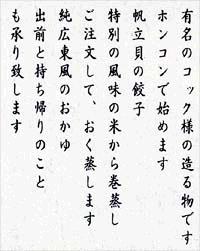 有名のコック様の造る物です
ホンコンで始めます
帆立貝の餃子
特別の風味の米から巻蒸し
ご注文して、おく蒸します
純広東風のおかゆ
出前と持ち帰りのこと
も承り致します